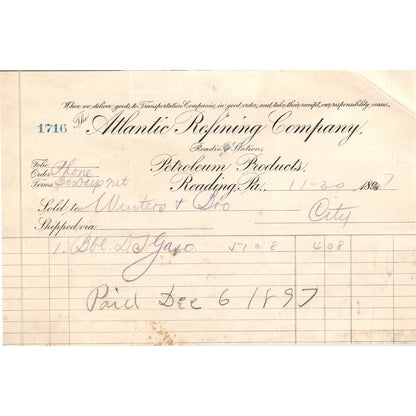 When we deliver goods to Transportation Companies in good order, and take their receipt, our responsibility ceases.
1716 The Atlantic Refining Company,
Reading Station,
Petroleum Products,
Folio
Order Phone
Terms 30 Days net
Reading, Pa., 11-20 1897
Sold to Winters & Bro City
Shipped via
1 Bbl. D S Gaso. 51 08 4 08
Paid Dec 6 1897